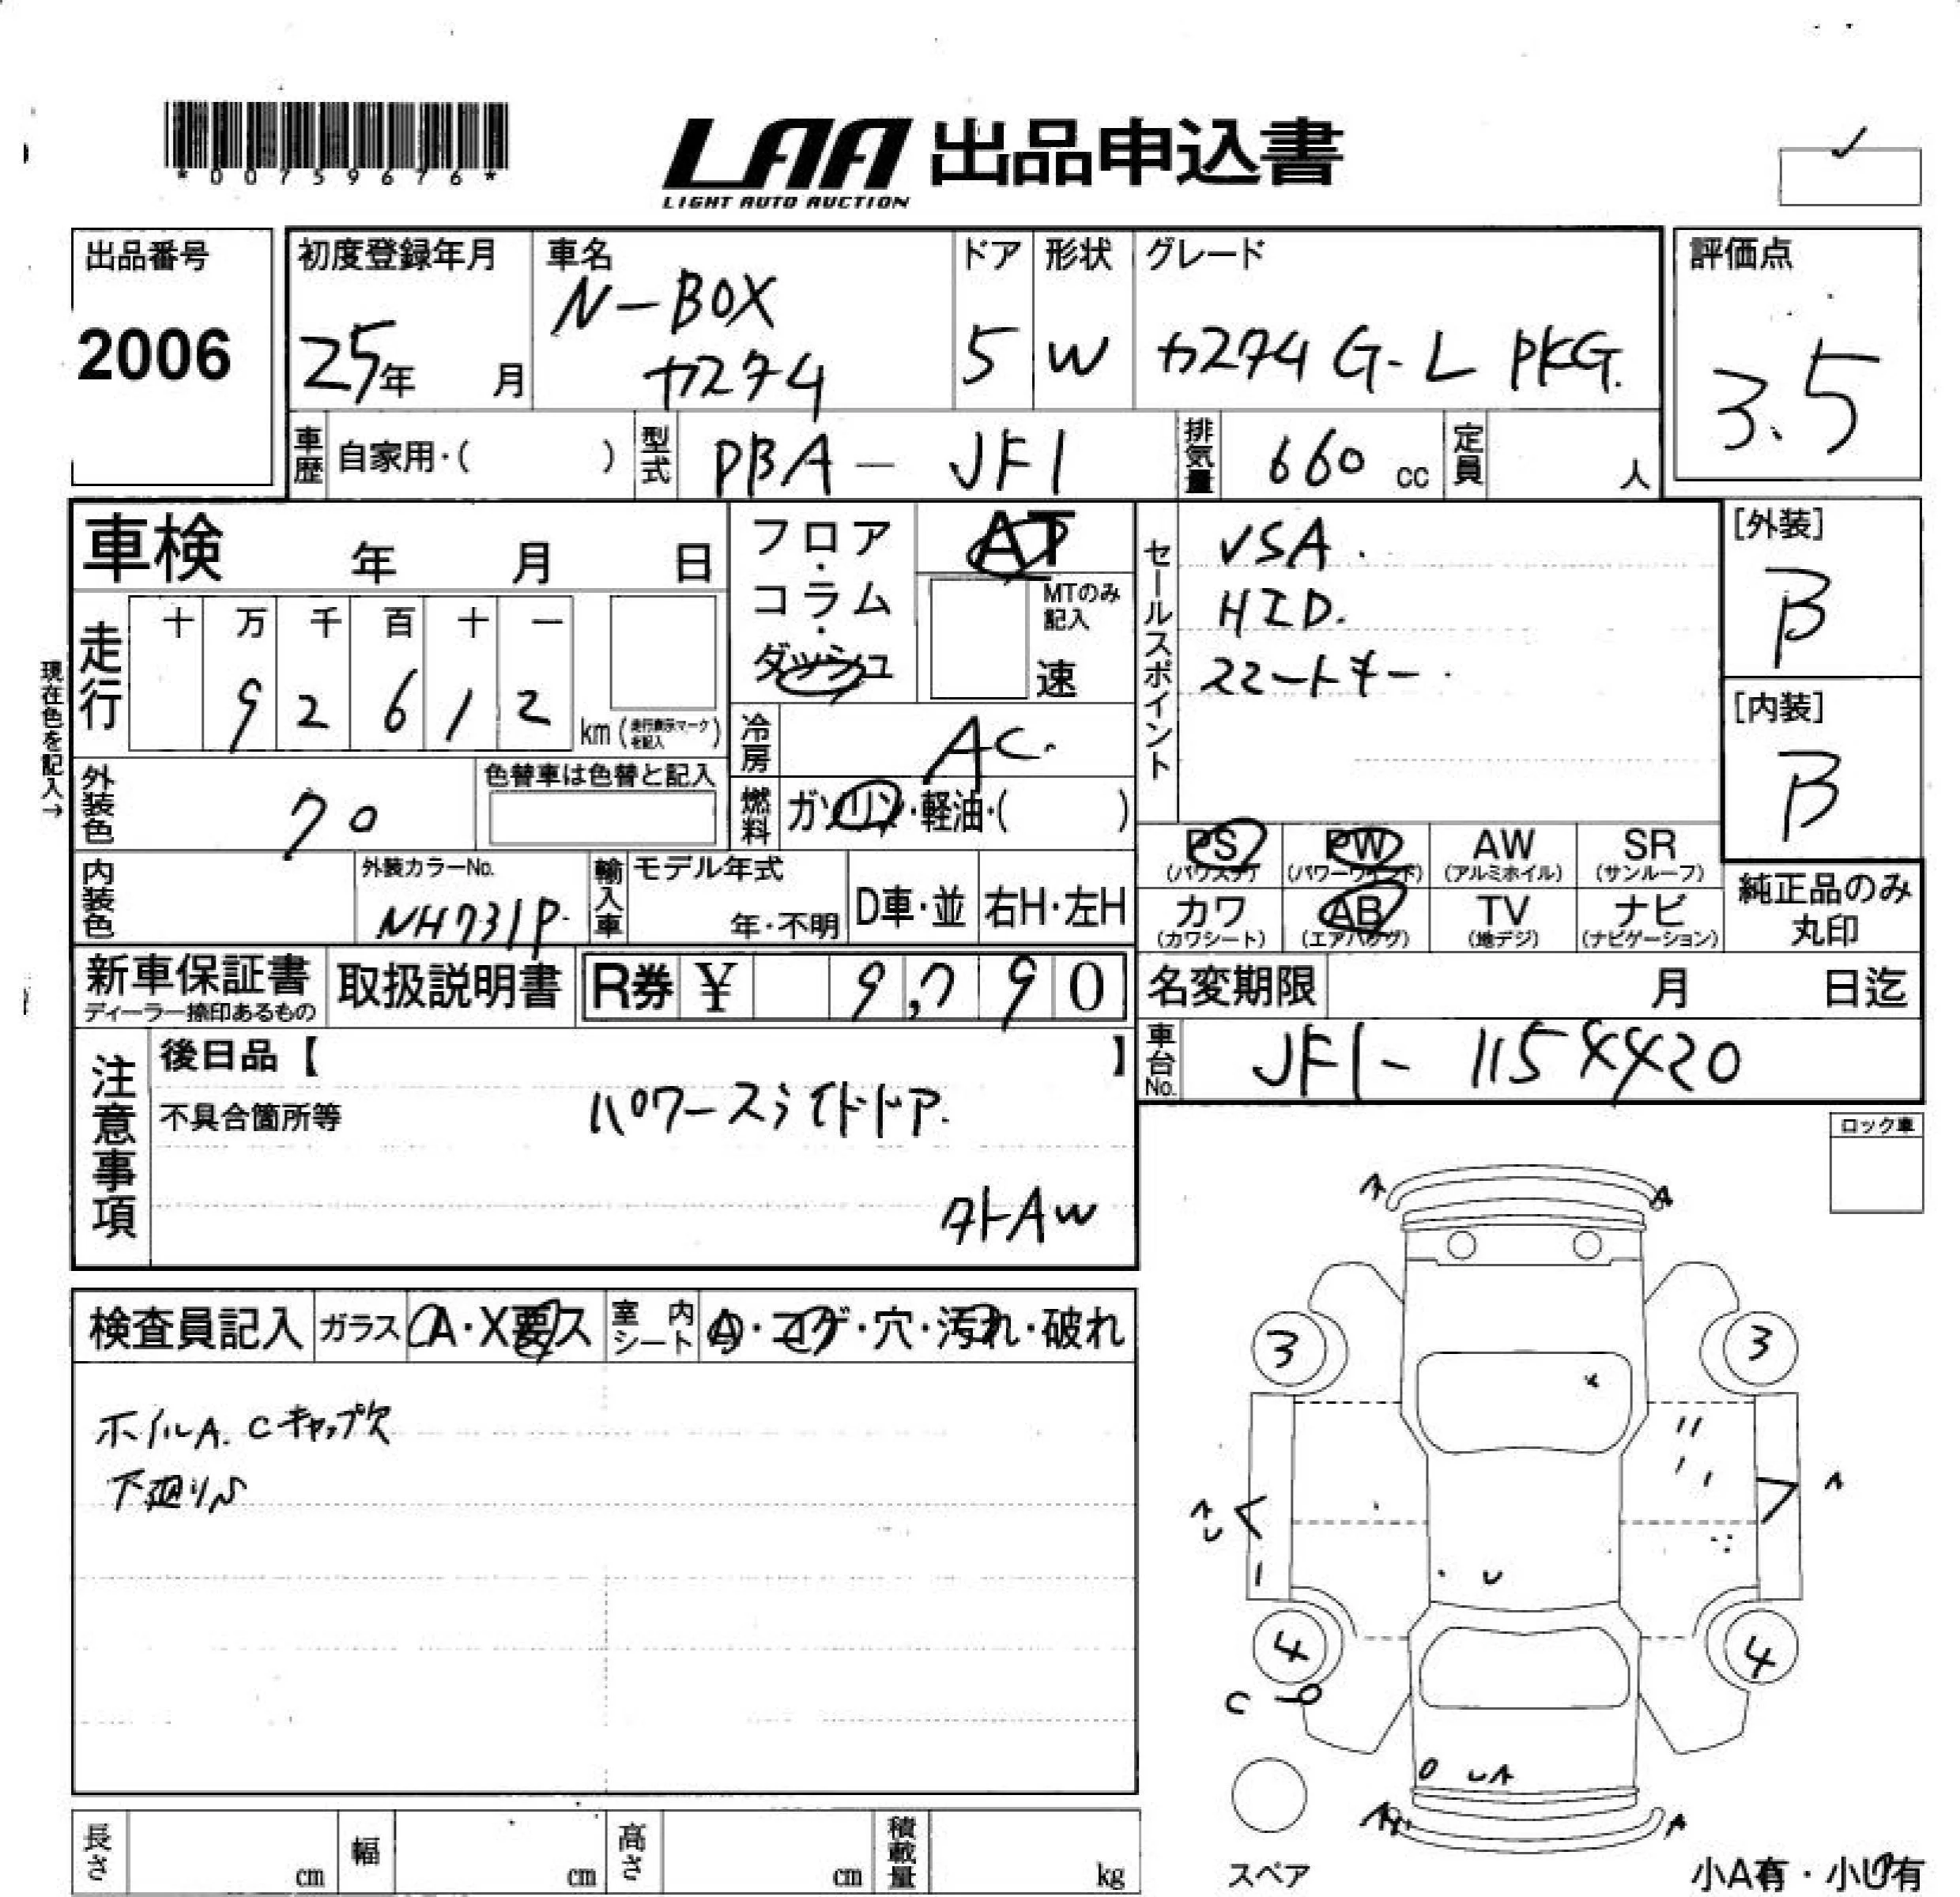 *00759676*
LAA 出品申込書
LIGHT AUTO AUCTION
出品番号
2006
初度登録年月
25年 月
車名
N-BOX
カスタム
ドア
5
形状
W
グレード
カスタム G-L PKG.
評価点
3.5
車歴 自家用・( )
型式 PBA - JF1
排気量 660 cc
定員 人
車検 年 月 日
現在色を記入→
走行
十 万 千 百 十 一
9 2 6 1 2 km (走行表示マークを記入)
フロア・コラム・ダッシュ
AT
MTのみ記入
速
冷房 AC.
燃料 ガソリン・軽油・( )
外装色 クロ
色替車は色替と記入
内装色
外装カラーNo.
NH731P.
輸入車
モデル年式
年・不明
D車・並
右H・左H
セールスポイント
VSA.
HID.
スマートキー.
[外装]
B
[内装]
B
PS (パワステ)
PW (パワーウインド)
AW (アルミホイル)
SR (サンルーフ)
カワ (カワシート)
AB (エアバッグ)
TV (地デジ)
ナビ (ナビゲーション)
純正品のみ
丸印
新車保証書
ディーラー捺印あるもの
取扱説明書
R券 ¥ 9,790
名変期限 月 日迄
車台No. JF1- 1154420
注意事項
後日品【 】
不具合箇所等
パワースライドドア.
外AW
ロック車
検査員記入
ガラス A・X要ス
室内シート A・コゲ・穴・汚れ・破れ
ホイルA. Cキャップ欠
下廻りS
A A
3 3
A
U
A
U
4 4
C
U A
A A
スペア
長さ cm
幅 cm
高さ cm
積載量 kg
小A有・小U有